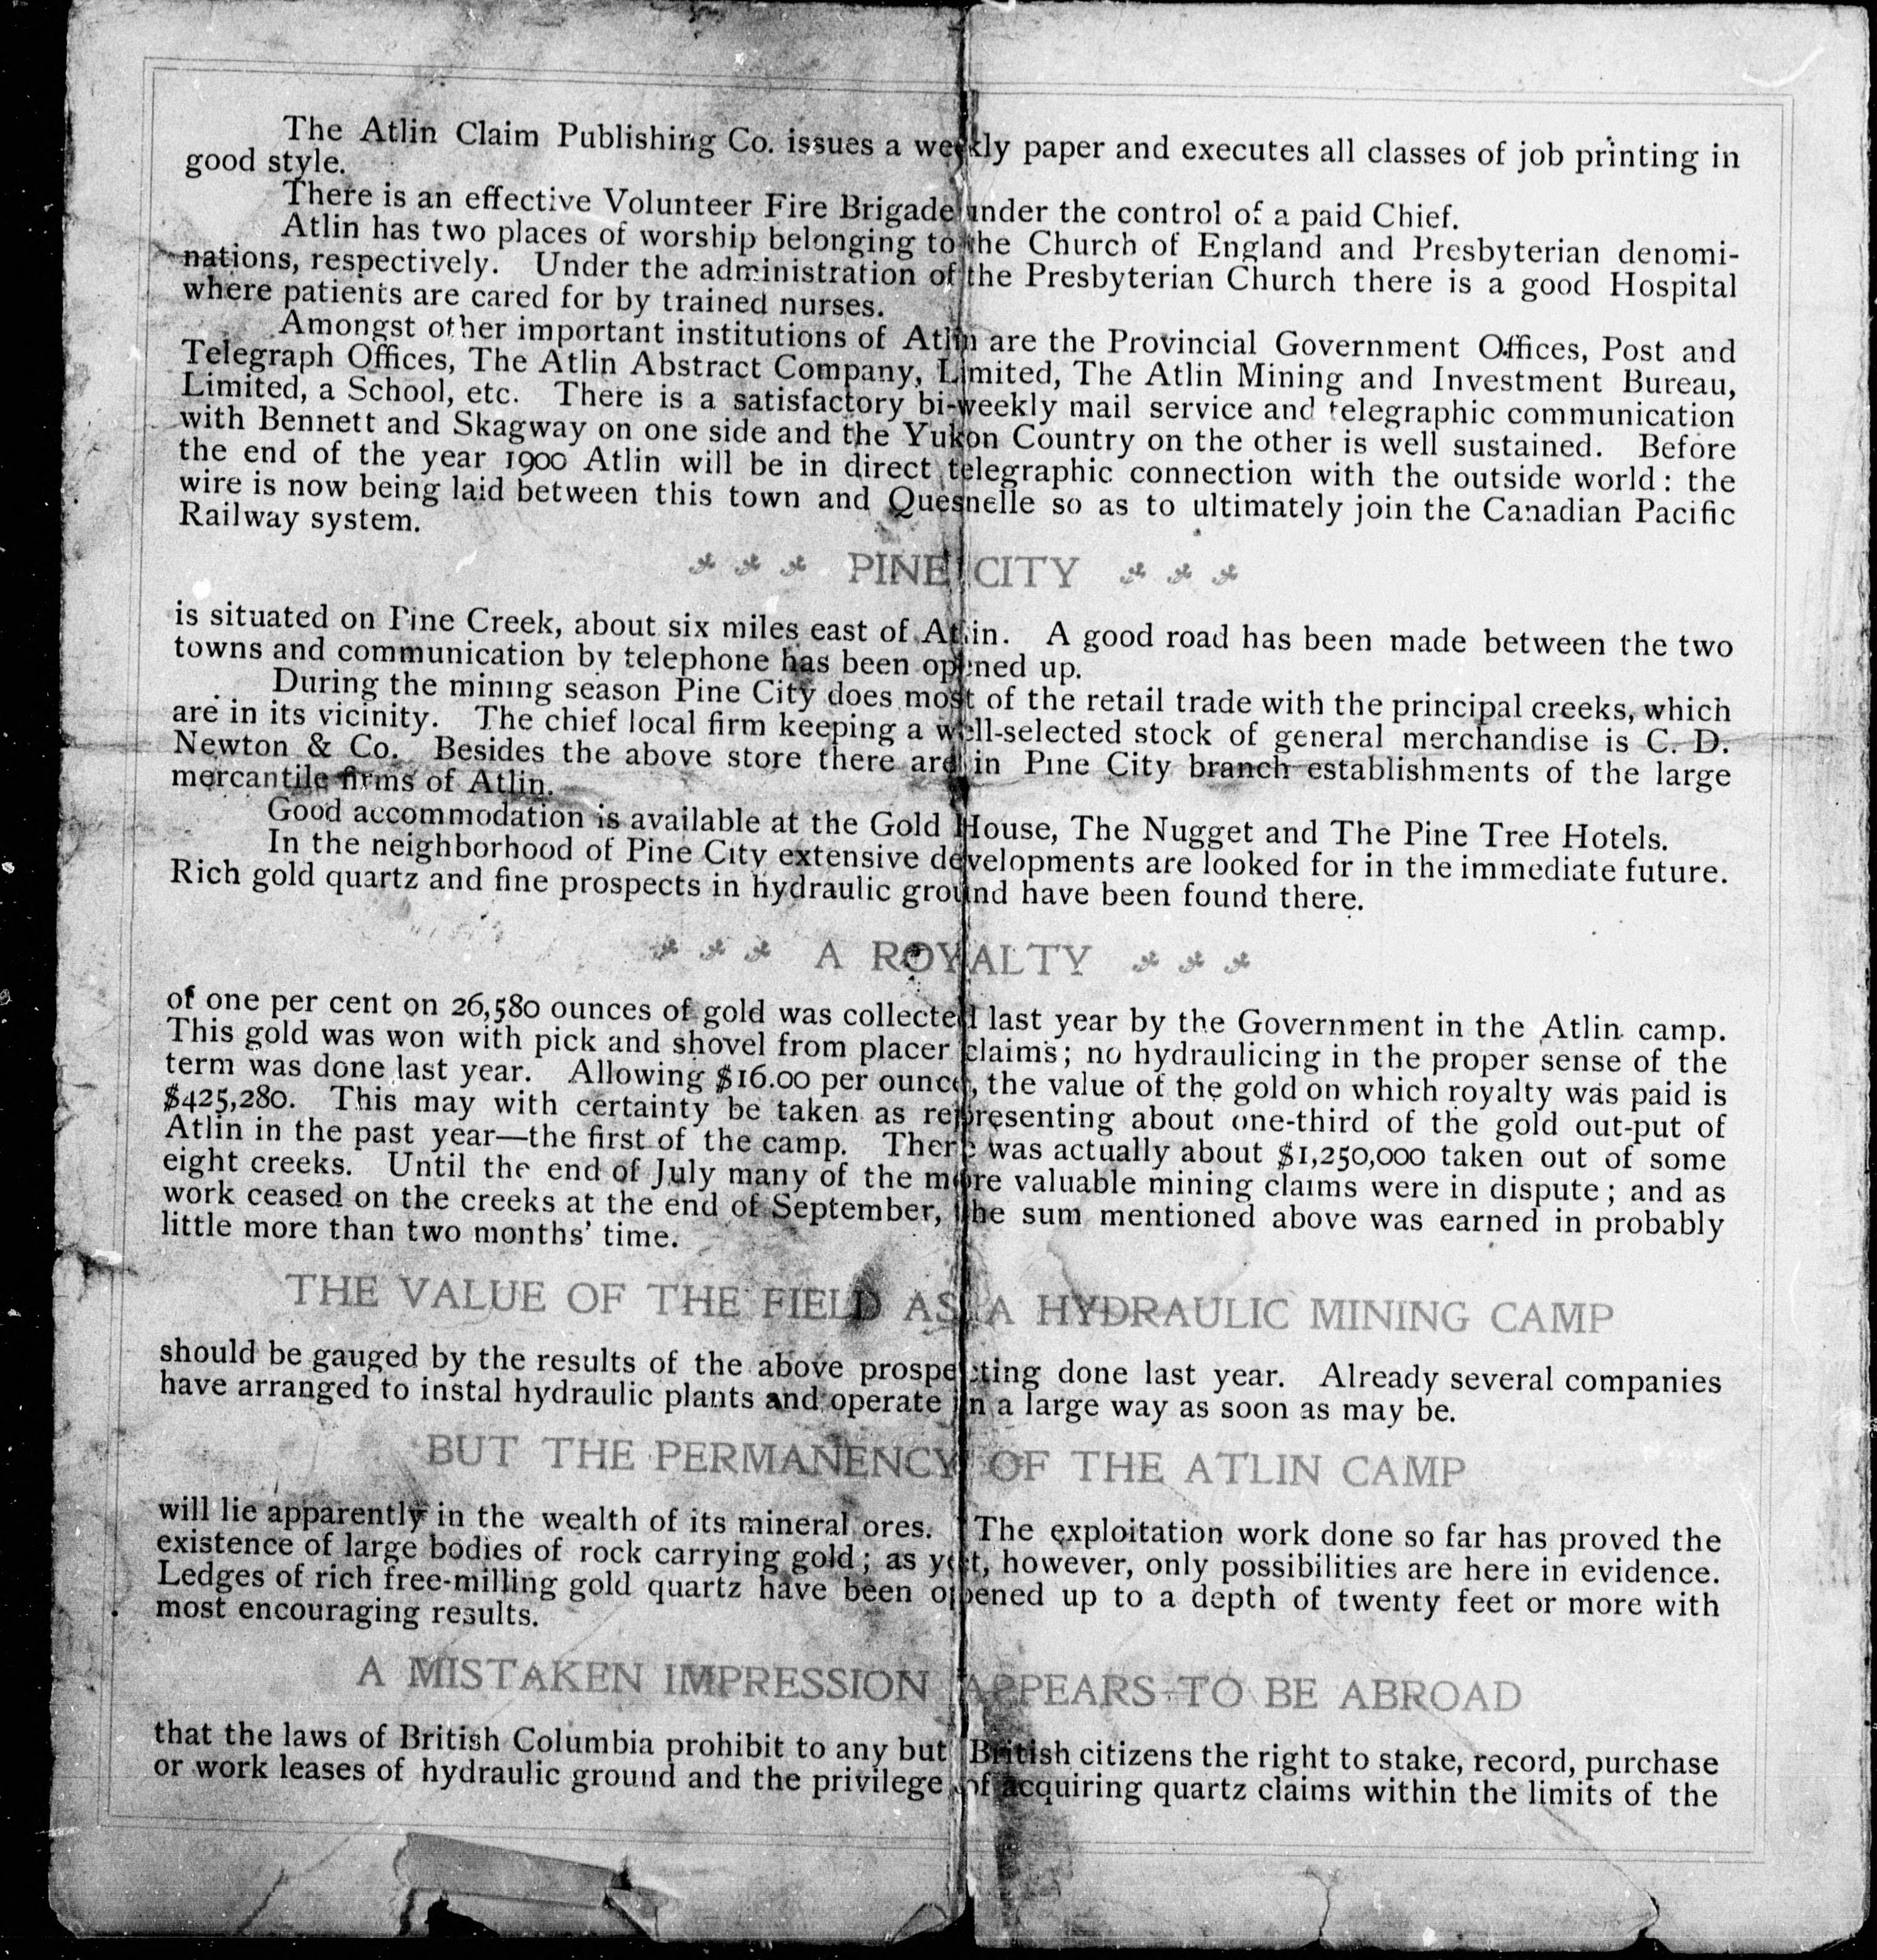 The Atlin Claim Publishing Co. issues a weekly paper and executes all classes of job printing in
good style.
There is an effective Volunteer Fire Brigade under the control of a paid Chief.
Atlin has two places of worship belonging to the Church of England and Presbyterian denomi-
nations, respectively. Under the administration of the Presbyterian Church there is a good Hospital
where patients are cared for by trained nurses.
Amongst other important institutions of Atlin are the Provincial Government Offices, Post and
Telegraph Offices, The Atlin Abstract Company, Limited, The Atlin Mining and Investment Bureau,
Limited, a School, etc. There is a satisfactory bi-weekly mail service and telegraphic communication
with Bennett and Skagway on one side and the Yukon Country on the other is well sustained. Before
the end of the year 1900 Atlin will be in direct telegraphic connection with the outside world: the
wire is now being laid between this town and Quesnelle so as to ultimately join the Canadian Pacific
Railway system.
PINE CITY
is situated on Pine Creek, about six miles east of Atlin. A good road has been made between the two
towns and communication by telephone has been opened up.
During the mining season Pine City does most of the retail trade with the principal creeks, which
are in its vicinity. The chief local firm keeping a well-selected stock of general merchandise is C. D.
Newton & Co. Besides the above store there are in Pine City branch establishments of the large
mercantile firms of Atlin.
Good accommodation is available at the Gold House, The Nugget and The Pine Tree Hotels.
In the neighborhood of Pine City extensive developments are looked for in the immediate future.
Rich gold quartz and fine prospects in hydraulic ground have been found there.
A ROYALTY
of one per cent on 26,580 ounces of gold was collected last year by the Government in the Atlin camp.
This gold was won with pick and shovel from placer claims; no hydraulicing in the proper sense of the
term was done last year. Allowing $16.00 per ounce, the value of the gold on which royalty was paid is
$425,280. This may with certainty be taken as representing about one-third of the gold out-put of
Atlin in the past year—the first of the camp. There was actually about $1,250,000 taken out of some
eight creeks. Until the end of July many of the more valuable mining claims were in dispute; and as
work ceased on the creeks at the end of September, the sum mentioned above was earned in probably
little more than two months' time.
THE VALUE OF THE FIELD AS A HYDRAULIC MINING CAMP
should be gauged by the results of the above prospecting done last year. Already several companies
have arranged to instal hydraulic plants and operate in a large way as soon as may be.
BUT THE PERMANENCY OF THE ATLIN CAMP
will lie apparently in the wealth of its mineral ores. The exploitation work done so far has proved the
existence of large bodies of rock carrying gold; as yet, however, only possibilities are here in evidence.
Ledges of rich free-milling gold quartz have been opened up to a depth of twenty feet or more with
most encouraging results.
A MISTAKEN IMPRESSION APPEARS TO BE ABROAD
that the laws of British Columbia prohibit to any but British citizens the right to stake, record, purchase
or work leases of hydraulic ground and the privilege of acquiring quartz claims within the limits of the